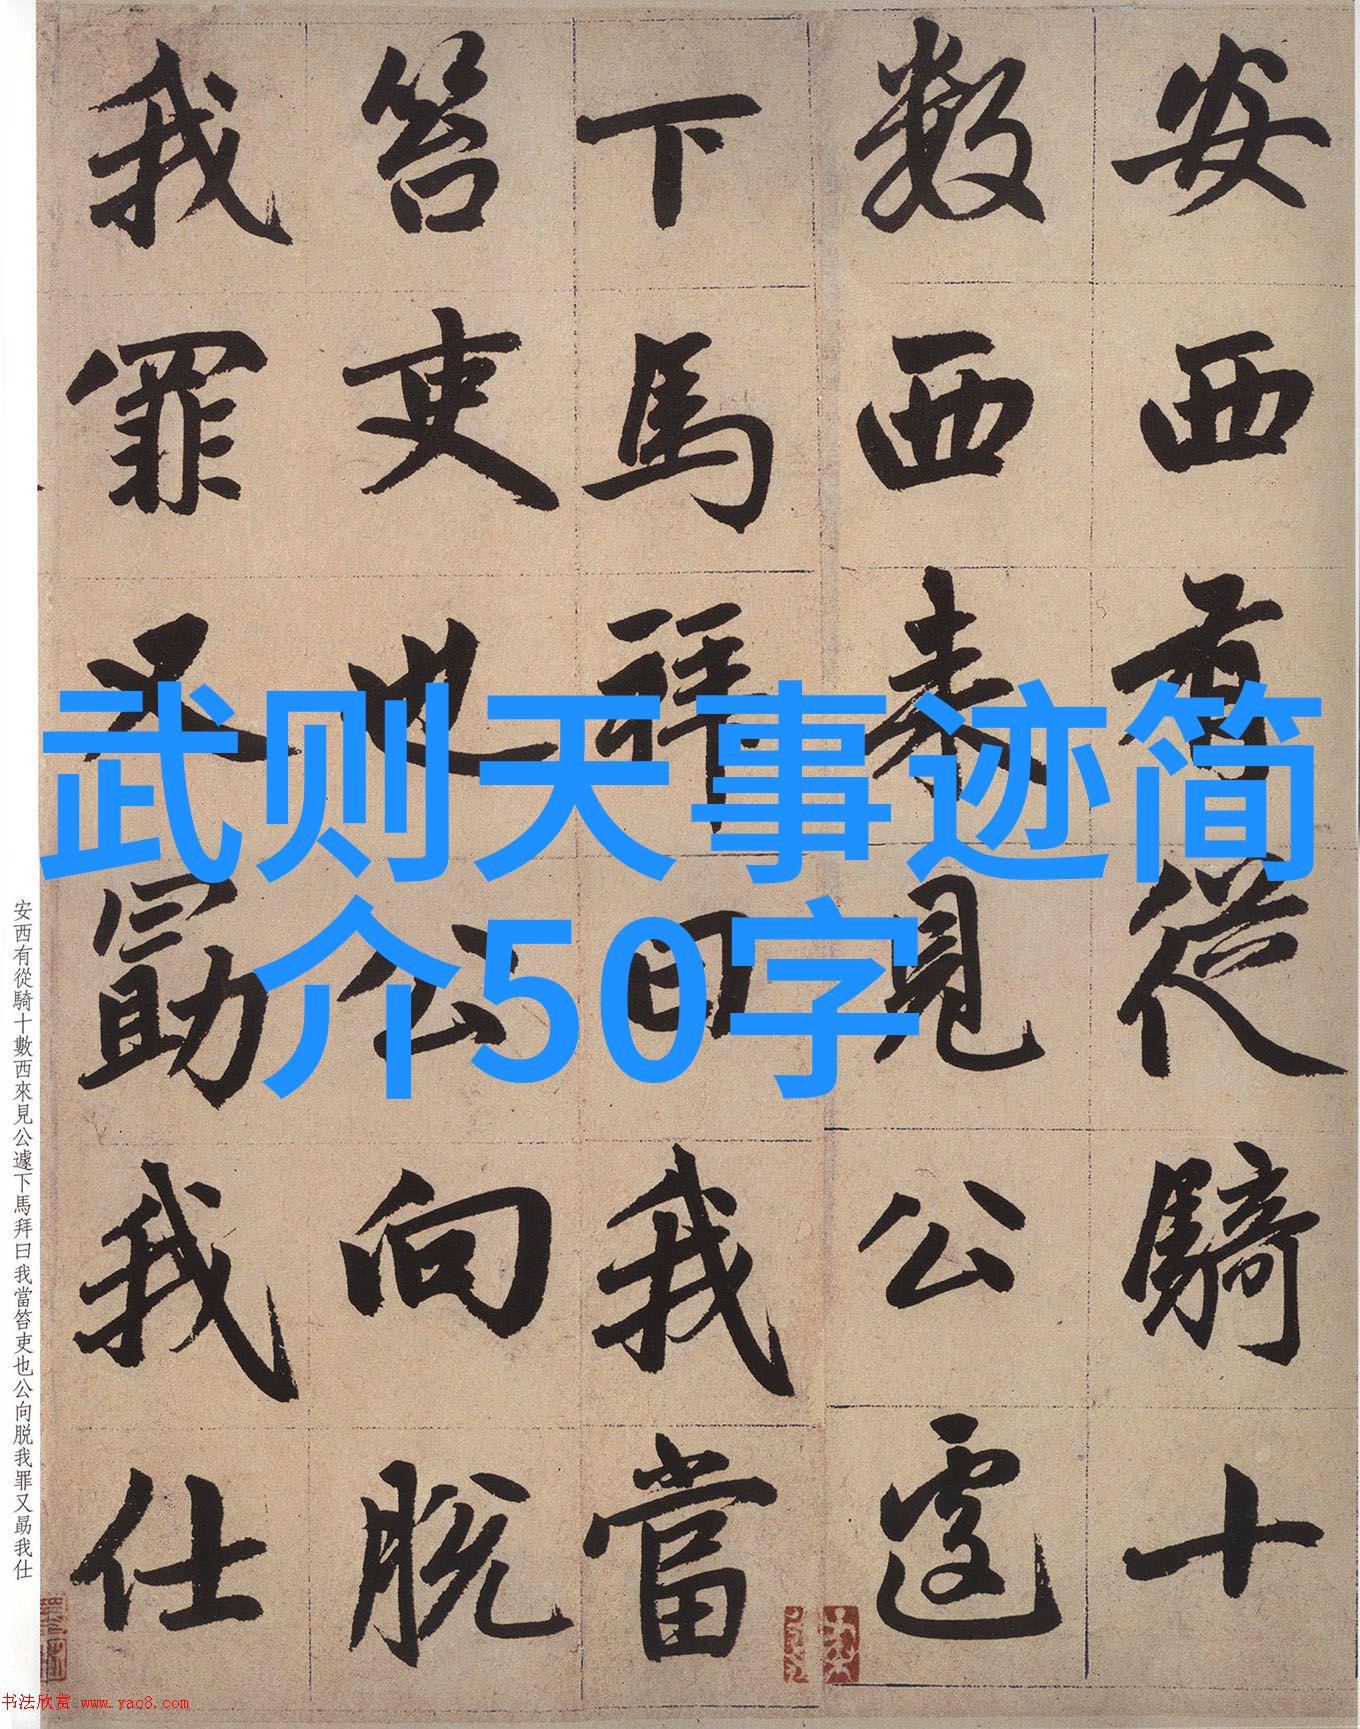 安西有從騎十
數西來見公遽
下馬拜曰我當
笞吏也公向脱
我罪又勗我仕
武则天事迹简
介50字
安西有從騎十數西來見公遽下馬拜曰我當笞吏也公向脱我罪又勗我仕
书法欣赏 www.yac8.com